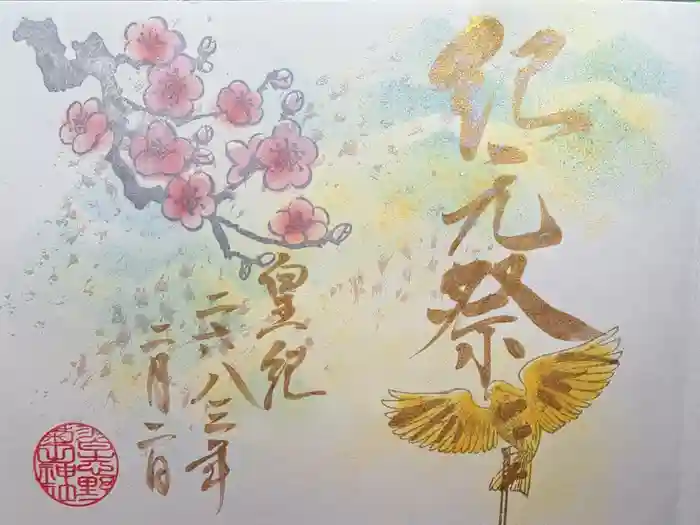 紀元祭
皇紀
二六八三年
二月二日
神社